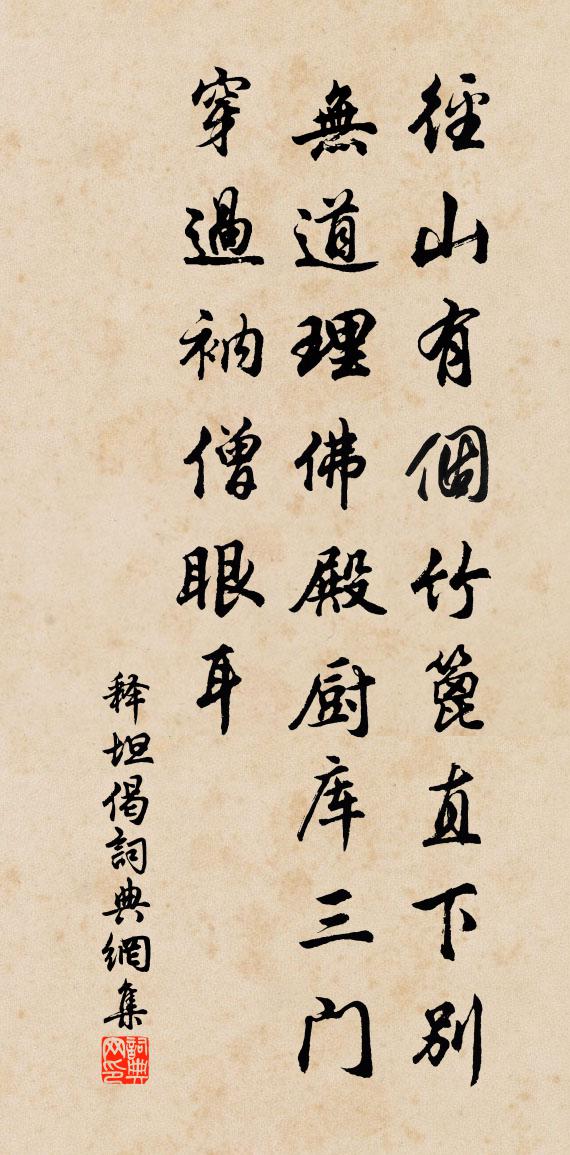 徑山有個竹篦直下別
無道理佛殿厨库三门
穿過衲僧眼耳
释坦偈詞典網集
詞典网印